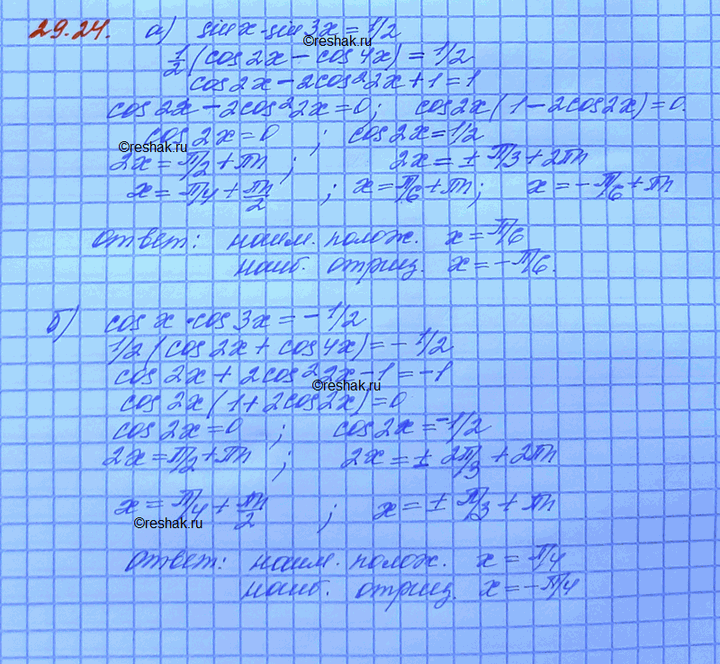 29.24. а) sin x · sin 3x = 1/2
©reshak.ru
1/2 (cos 2x - cos 4x) = 1/2
cos 2x - 2cos² 2x + 1 = 1
cos 2x - 2cos² 2x = 0; cos 2x (1 - 2cos 2x) = 0.
cos 2x = 0 ; cos 2x = 1/2
©reshak.ru
2x = π/2 + πn ; 2x = ± π/3 + 2πn
x = π/4 + πn/2 ; x = π/6 + πn; x = - π/6 + πn
ответ: наим. полож. x = π/6
наиб. отриц. x = - π/6.
б) cos x · cos 3x = - 1/2
1/2 (cos 2x + cos 4x) = - 1/2
cos 2x + 2cos² 2x - 1 = -1
©reshak.ru
cos 2x (1 + 2cos 2x) = 0
cos 2x = 0 ; cos 2x = -1/2
2x = π/2 + πn ; 2x = ± 2π/3 + 2πn
x = π/4 + πn/2 ; x = ± π/3 + πn
©reshak.ru
ответ: наим. полож. x = π/4
наиб. отриц. x = - π/4